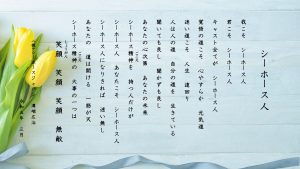 シーホース人
我こそ シーホース人
君こそ シーホース人
キャスト全てが シーホース人
覚悟の道こそ 心やすらか 元気道
迷い道こそ 人生 遠回り
人は人の道 自分の道を 生きている
聞いても良し 聞かずも良し
あなたの心次第 あなたの未来
シーホース精神を 持つ人だけが
シーホース人 あなたこそ シーホース人
シーホース人になりきれば 迷い無し
あなたの 道は開ける 一筋が天
シーホース精神の 大事の一つは
笑顔 笑顔 笑顔 無敵